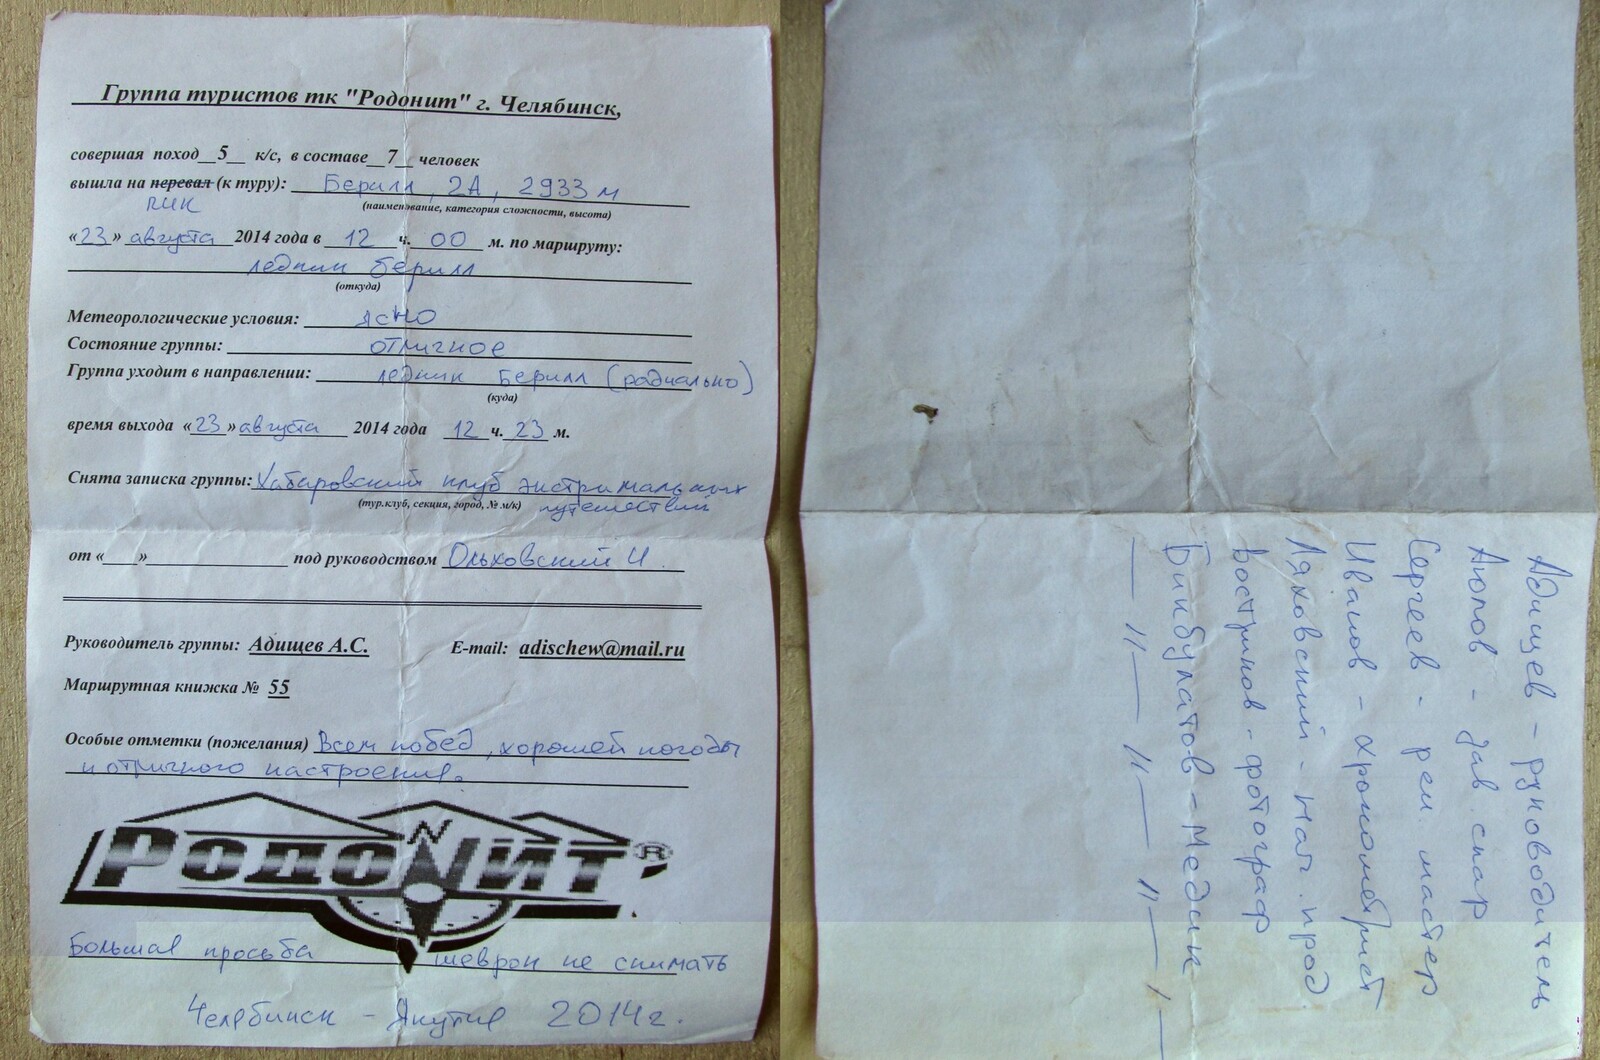 Группа туристов тк "Родонит" г. Челябинск,
совершая поход 5 к/с, в составе 7 человек
вышла на перевал (к туру): Берилл, 2А, 2933 м
пик
(наименование, категория сложности, высота)
«23» августа 2014 года в 12 ч. 00 м. по маршруту:
ледник Берилл
(откуда)
Метеорологические условия: ясно
Состояние группы: отличное
Группа уходит в направлении: ледник Берилл (радиально)
(куда)
время выхода «23» августа 2014 года 12 ч. 23 м.
Снята записка группы: Хабаровский клуб экстримальных
(тур.клуб, секция, город, № м/к) путешествий
от «___»______________ под руководством Ольховский И.
Руководитель группы: Адищев А.С. E-mail: adischew@mail.ru
Маршрутная книжка № 55
Особые отметки (пожелания) Всем побед, хорошей погоды
и отличного настроения.
РОДОНИТ®
N
Большая просьба шеврон не снимать
Челябинск - Якутия 2014г.
Адищев - руководитель
Аюпов - зав. снар
Сергеев - рем. мастер
Иванов - хронометрист
Ляховский - нач. прод
Востриков - фотограф
Бикбулатов - Медик
— " — " — " — " —